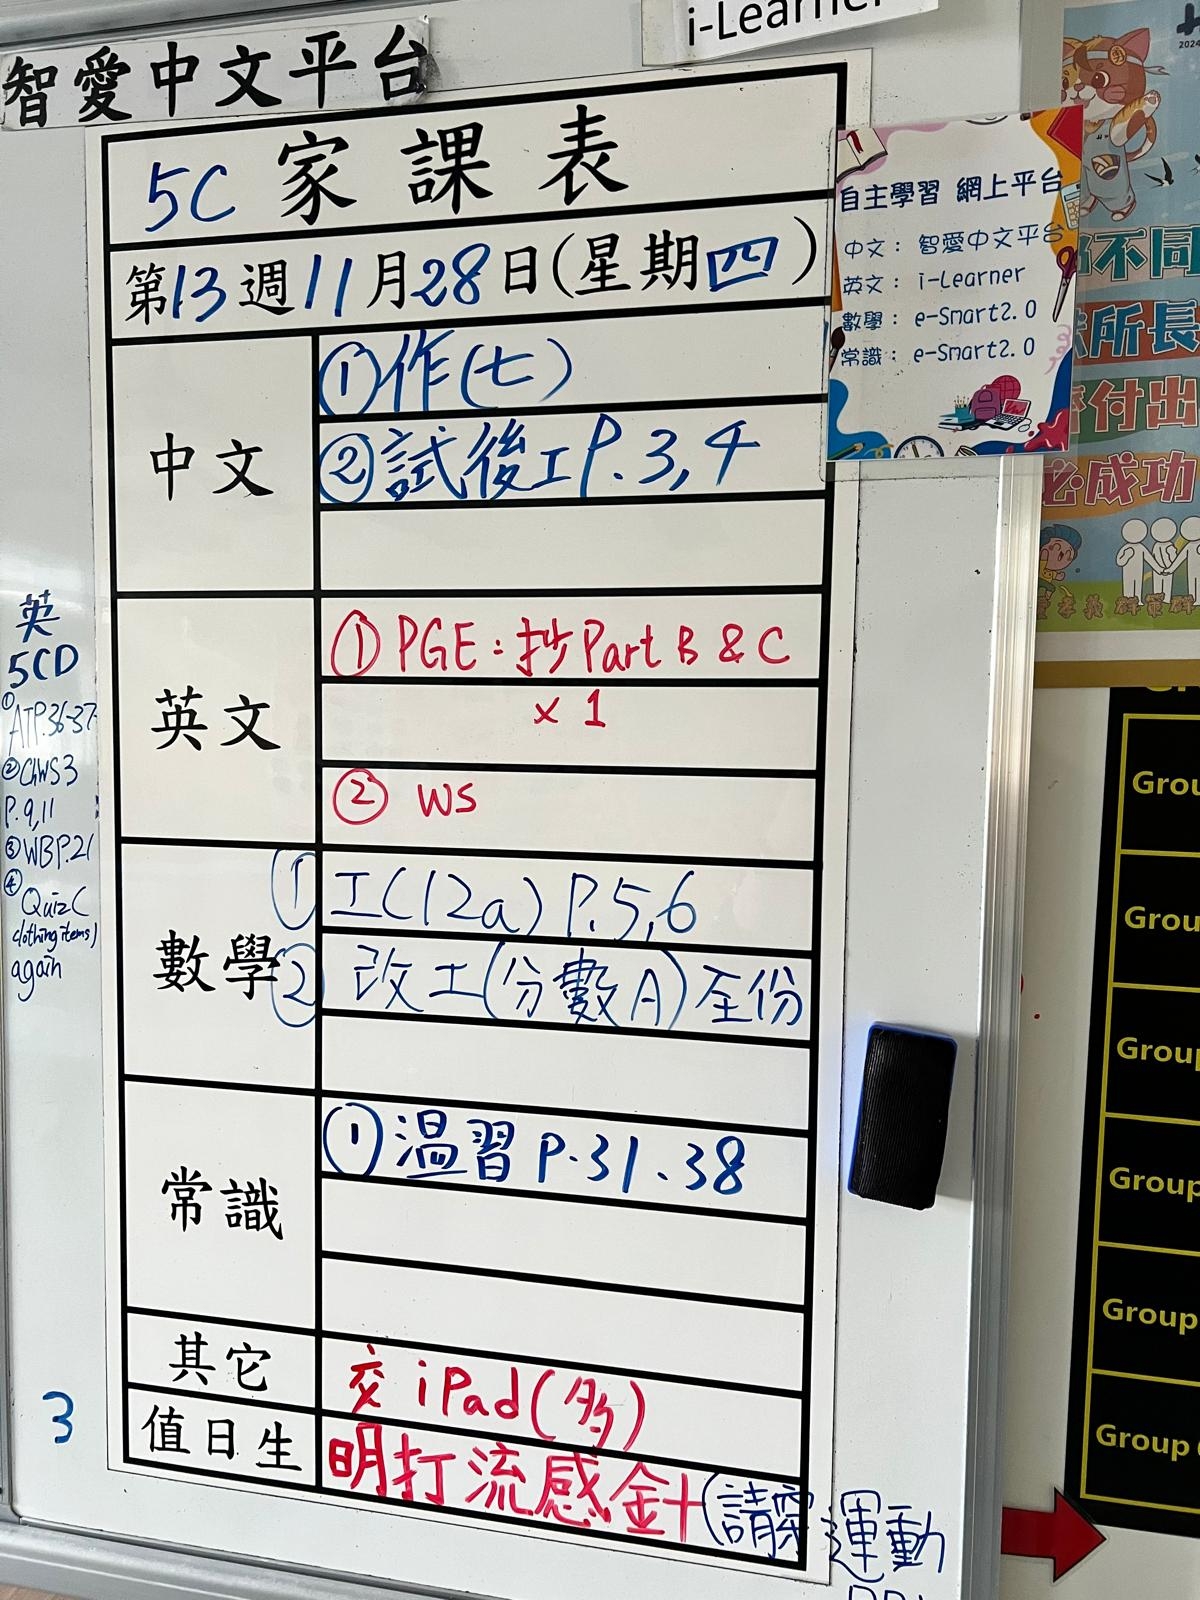 i-Learner
智愛中文平台
5C 家課表
第13週11月28日(星期四)
中文
①作(七)
②試後工P.3,4
英文
①PGE:抄Part B & C
x 1
② WS
數學
① 工(12a) P.5,6
② 改工(分數A)至份
常識
①溫習 P.31.38
其它
交 iPad(多)
值日生
明打流感針(請穿運動
英
5CD
①
ATP.36-37
②GWS3
P.9,11
③WBP.21
④
Quiz(
clothing items)
again
3
自主學習 網上平台
中文: 智愛中文平台
英文: i-Learner
數學: e-Smart2.0
常識: e-Smart2.0
2024
不同
所長
付出
必成功
Grou
Grou
Group
Group
Group
Group